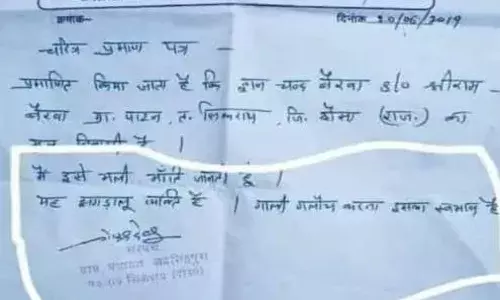 क्रमांक- दिनांक 20/06/2019
-चरित्र प्रमाण पत्र -
प्रमाणित किया जाता है कि ज्ञान चन्द बैरवा S/O श्रीराम -
बैरवा ग्रा. पाटन, त. सिकराय, जि. दौसा (राज.) का
मूल निवासी है ।
मैं इसे भली भाँति जानता हूं ।
यह झगड़ालू व्यक्ति है । गाली गलौच करना इसका स्वभाव है
सरपंच
ग्राम पंचायत
पं.स. सिकराय (दौसा)